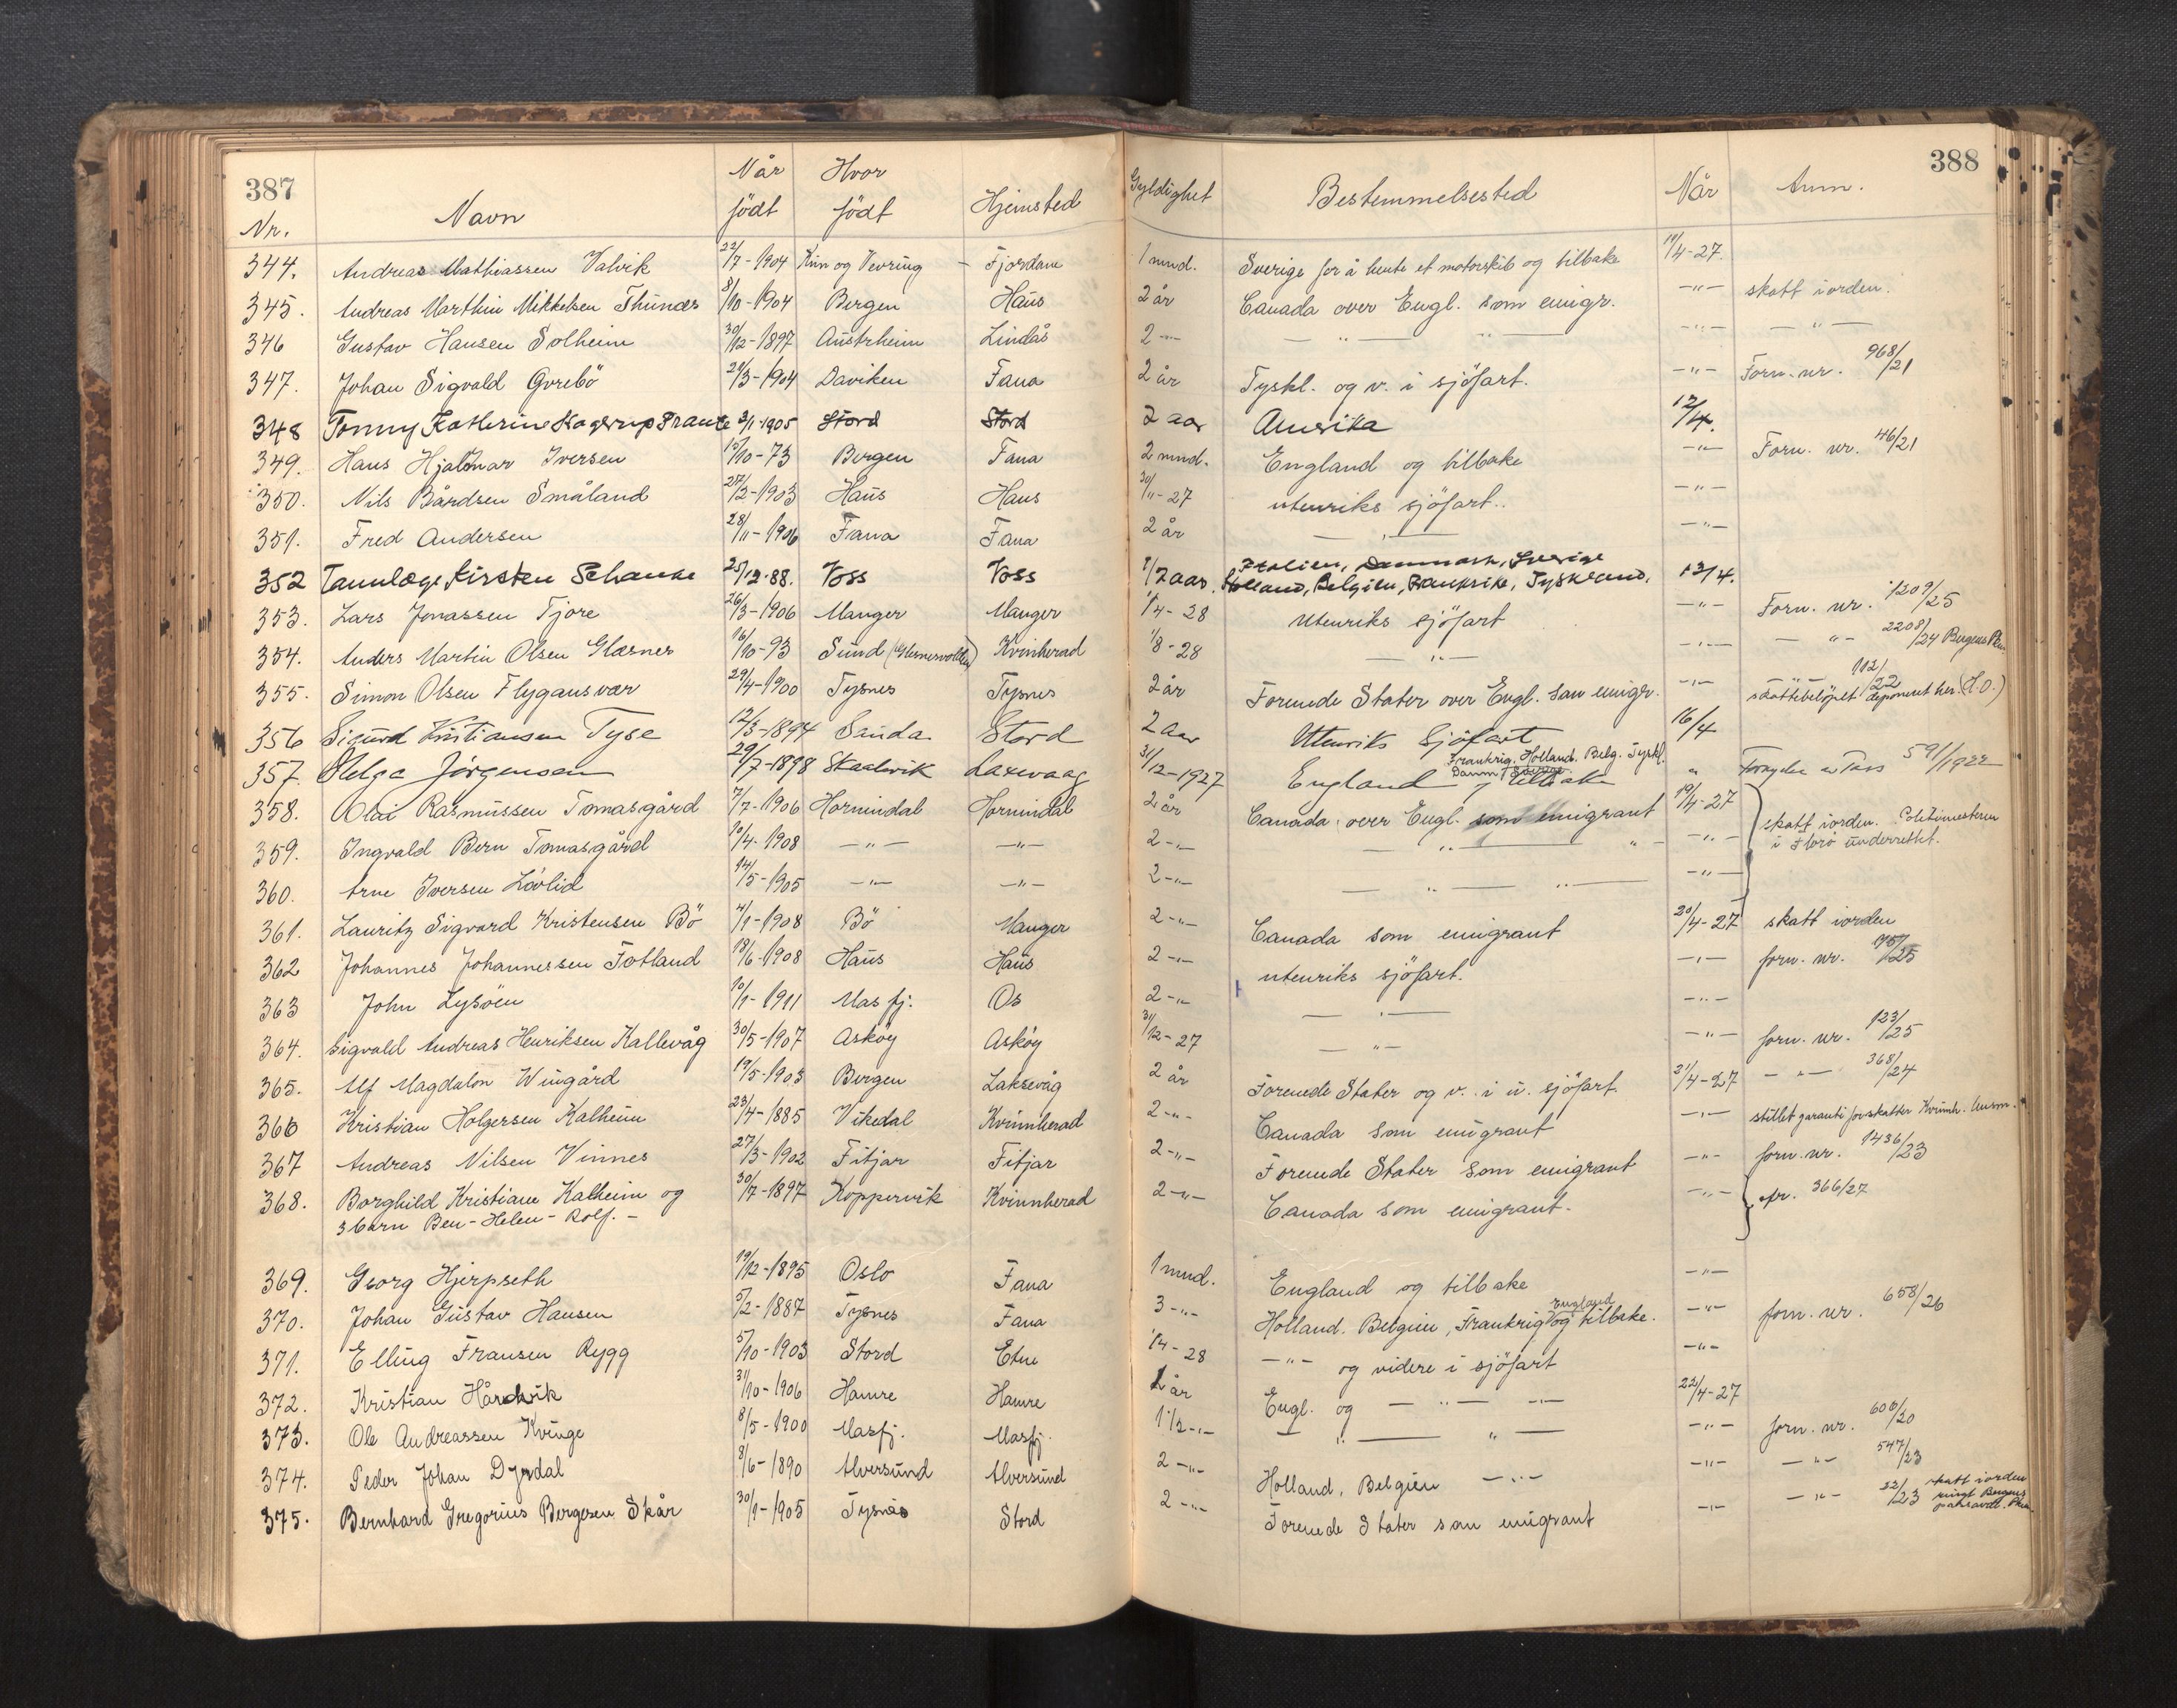 387
388
Nr. Navn Når födt Hvor födt Hjemsted Gyldighet Bestemmelsested Når Anm.
344. Andreas Mathiassen Valvik 22/7-1904 Kinn og Vevring - Fjordane 1 mnd. Sverige for å hente et motorskib og tilbake 11/4-27.
345. Andreas Marthin Mikkelsen Thunæs 8/10-1904 Bergen Haus 2 år Canada over Engl. som emigr. -"- skatt iorden.
346 Gustav Hansen Solheim 30/12-1897 Austrheim Lindås 2 -"- -"- -"- -"- -"-
347. Johan Sigvald Gvrebö 21/3-1904 Daviken Fana 2 år Tyskl. og v. i sjöfart. -"- Forn. nr. 968/21
348 Tonny Katherine Kagerup Frantz 3/1-1905 Stord Stord 2 aar Amerika 12/4.
349. Hans Hjalmar Iversen 15/10-73 Bergen Fana 2 mnd. England og tilbake -"- Forn. nr. 46/21
350. Nils Bårdsen Småland 27/2-1903 Haus Haus 30/11-27 utenriks sjöfart. -"-
351. Fred Andersen 28/11-1906 Fana Fana 2 år -"- -"-
352 Tannlæge Kirsten Schanke 25/12-88. Voss Voss 1/2 aar Italien, Danmark, Sverige
Holland, Belgien, Frankrike, Tyskland. 13/4.
353. Lars Jonassen Tjore 26/3-1906 Manger Manger 1/4-28 Utenriks sjöfart -"- Forn. nr. 1209/25
354. Anders Martin Olsen Glæsner 16/10-93 Sund Kvinherad 1/8-28 -"- -"- -"- 2208/24 Bergens Pk.
355. Simon Olsen Flygansvær 29/4-1900 Tysnes Tysnes 2 år Forende Stater over Engl. som emigr. -"- 112/22
skattebelöpet deponert her. (H.O.)
356 Sigurd Kristiansen Tyse 12/3-1894 Sauda Stord 2 aar Utenriks Sjöfart 16/4
357. Helga Jörgensen 29/7-1898 Skaalvik Laxevaag 31/12-1927 Frankrig, Holland. Belg. Tyskl.
Danm. Sverige
England og tilbake " Fornyelse av Pass 591/1922
358. Olai Rasmussen Tomasgård 7/7-1906 Hornindal Hornindal 2 år Canada over Engl. som emigrant 19/4-27 skatt iorden. Politimesteren
i Florö underrettet.
359. Ingvald Bern Tomasgård 10/4-1908 -"- -"- 2 -"- -"- "- -"-
360. Arne Iversen Lövlid 14/5-1905 -"- -"- 2 -"- -"- -"- -"-
361. Lauritz Sigvard Kristensen Bö 4/1-1908 Bö Manger 2 -"- Canada som emigrant 20/4-27 skatt iorden
362 Johannes Johannessen Totland 18/6-1908 Haus Haus 2 -"- utenriks sjöfart. -"- forn. nr.
363 John Lysöen 10/1-1911 Masfj. Os 2 -"- -"- -"-
364. Sigvald Andreas Henriksen Kallevåg 30/5-1907 Asköy Asköy 31/12-27 -"- -"- forn. nr. 123/25
365. Alf Magdalon Wingård 19/5-1903 Bergen Laksevåg 2 år Forende Stater og v. i u. sjöfart. 21/4-27 -"- 368/24
366 Kristian Holgersen Kalheim 23/4-1885 Vikedal Kvinnherad 2 -"- Canada som emigrant -"- stillet garanti for skatter Kvinnh.
367 Andreas Nilsen Vinnes 27/3-1902 Fitjar Fitjar 2 -"- Forende Stater som emigrant -"- forn. nr. 1436/23
368. Borghild Kristiane Kalheim og 30/7-1897 Koppervik Kvinnherad 2 -"- Canada som emigrant. -"- cfr. 366/27
3 barn Ben - Helen - Rolf. -
369. Georg Hjerpseth 19/12-1895 Oslo Fana 1 mnd. England og tilbake -"-
370. Johan Gustav Hansen 5/2-1887 Tysnes Fana 3 -"- Holland. Belgien, Frankrig England og tilbake. -"- forn. nr. 658/26
371. Elling Fransen Rygg 5/10-1903 Stord Etne 1/4-28 -"- og videre i sjöfart -"-
372. Kristian Hårdvik 31/10-1906 Hamre Hamre 1 år Engl. og -"- -"- 22/4-27
373. Ole Andreassen Kvinge 8/5-1900 Masfj. Masfj. 1 1/2 -"- -"- " -"- forn. nr. 600/20
374. Peder Johan Dyrdal 8/6-1890 Alversund Alversund 2 -"- Holland, Belgien -"- -"- -"- 547/23
375. Bernhard Gregorius Bergesen Skår 30/1-1905 Tysnes Stord 2 -"- Forende Stater som emigrant -"- -"- 22/23 skatt iorden